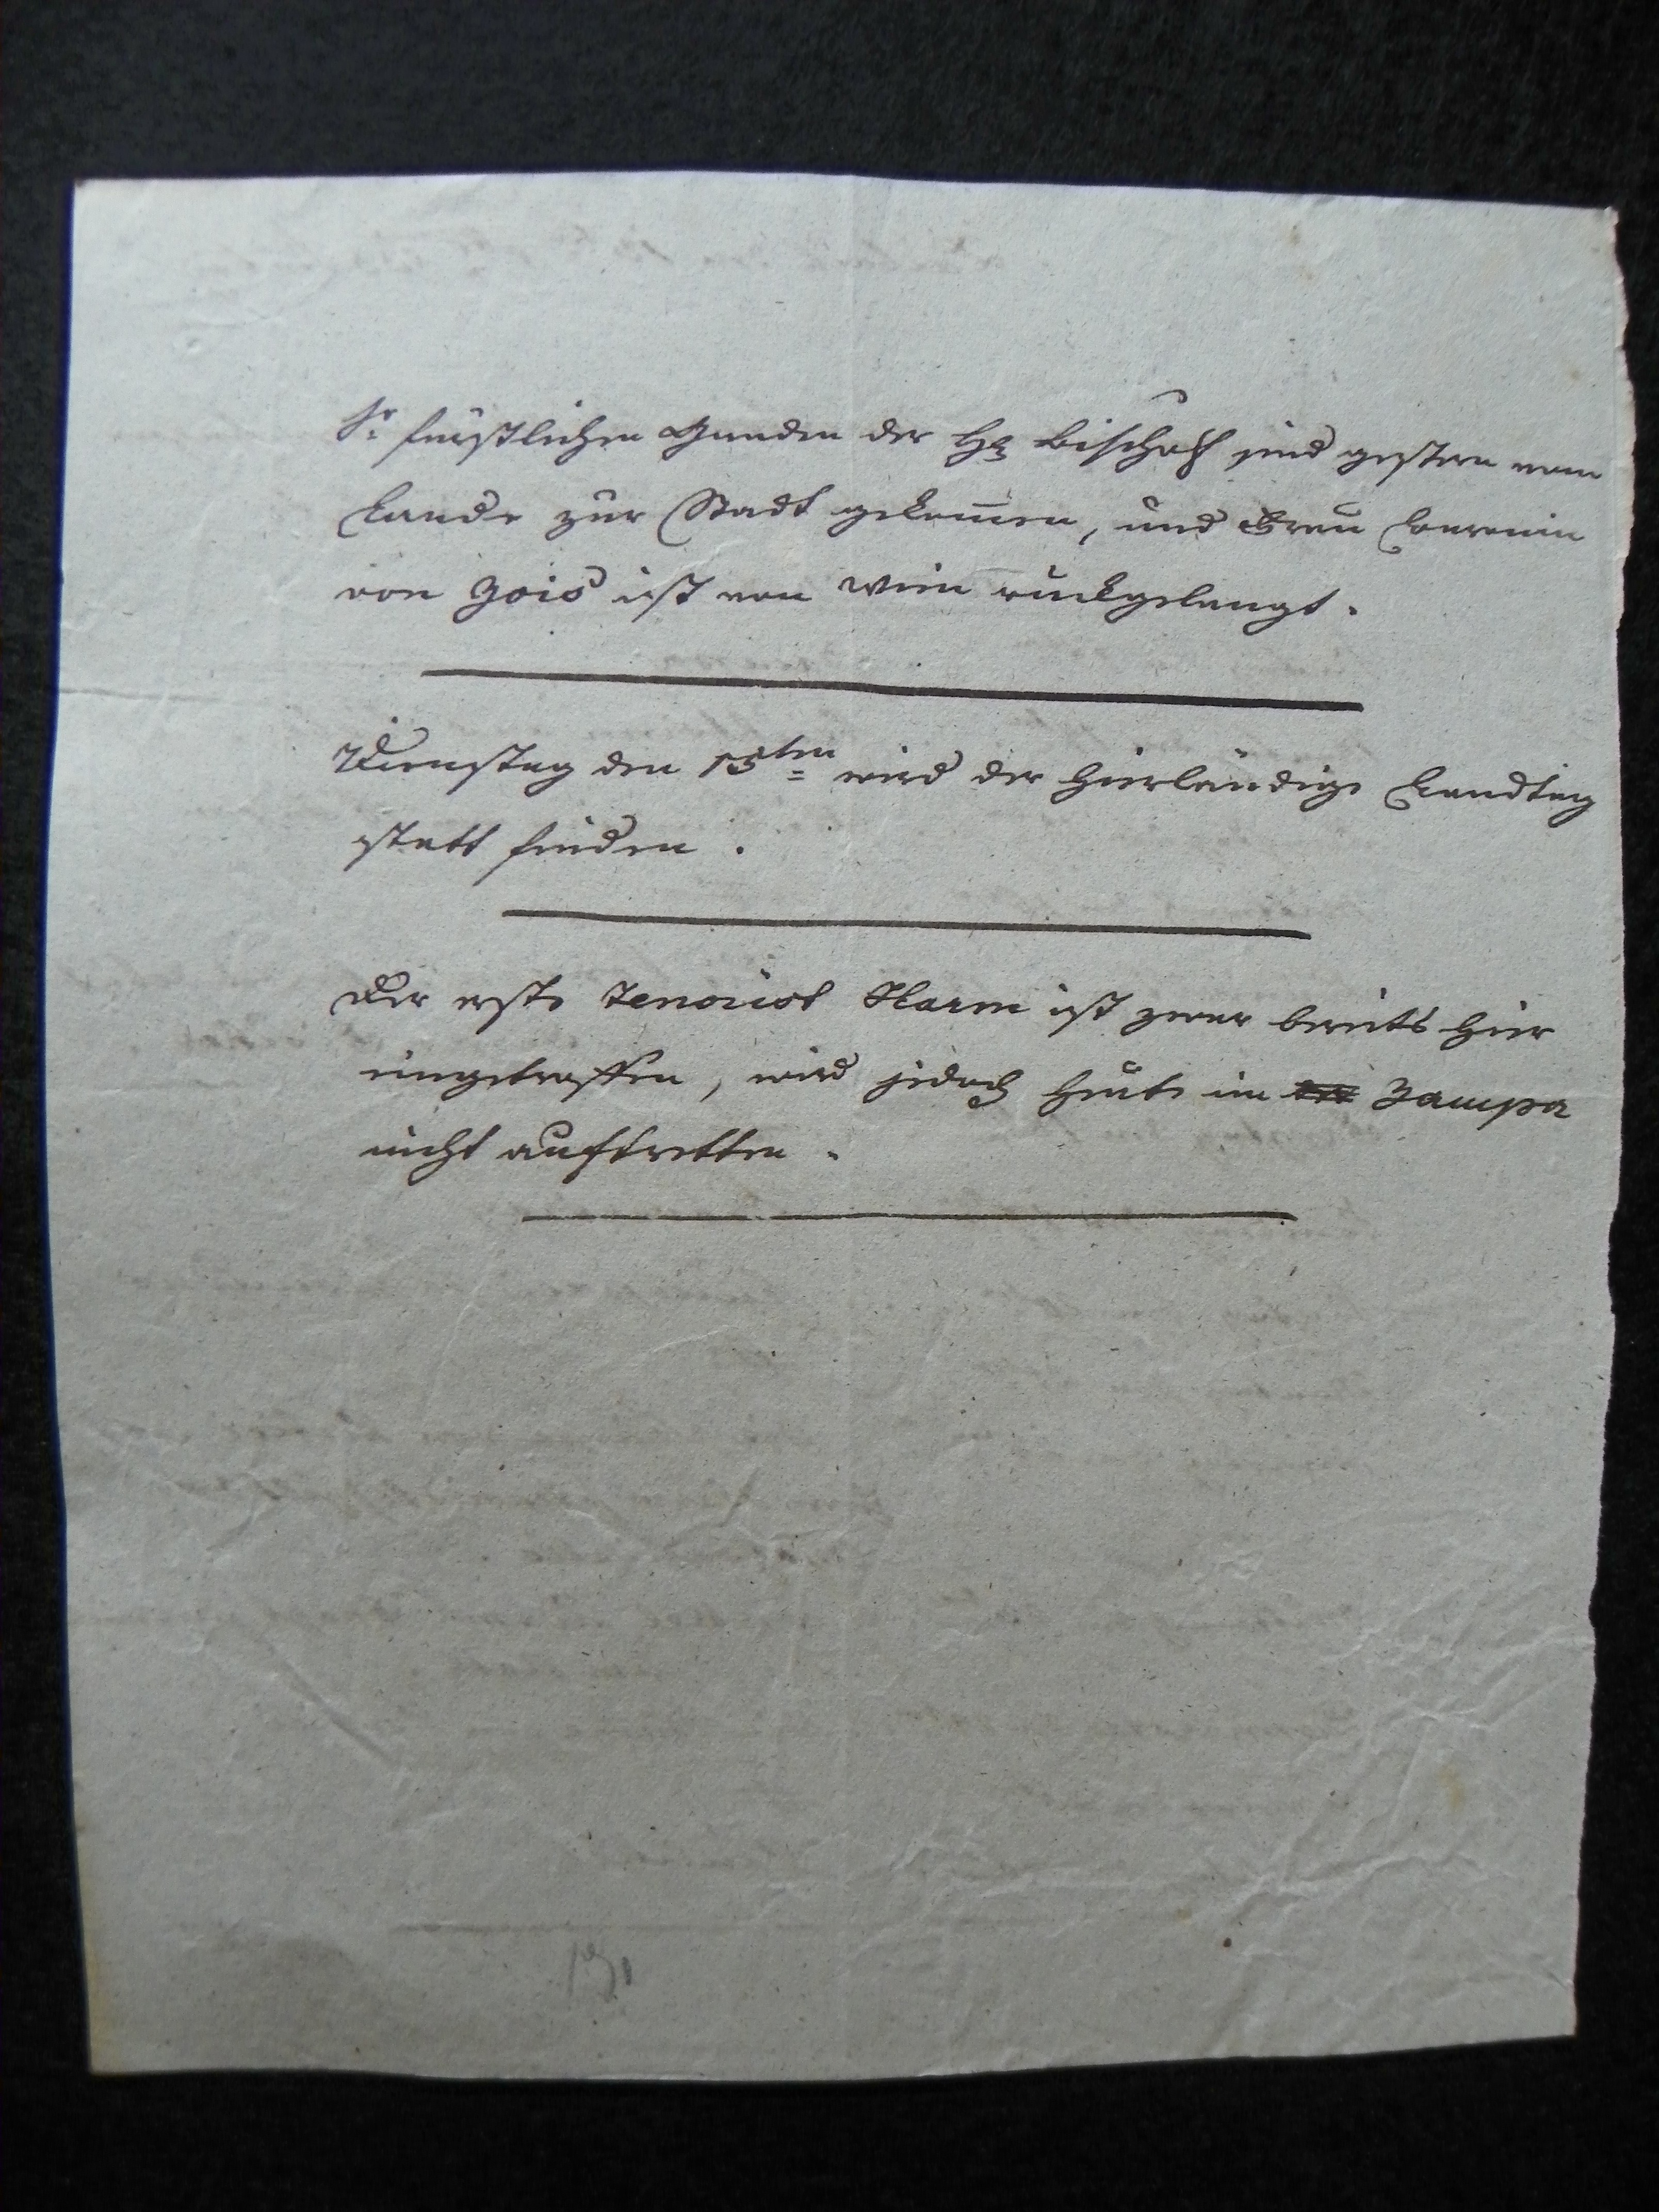 Sr fürstlichen Gnaden der H. Bischof sind gestern vom
Lande zur Stadt gekom̄en, und Frau Baronin
von Zois ist von Wien rückgelangt.
Dienstag den 15ten wird der hierländige Landtag
statt finden.
Der erste Tenorist ist zwar bereits hier
eingetroffen, wird jedoch heute im Zampa
nicht auftretten.